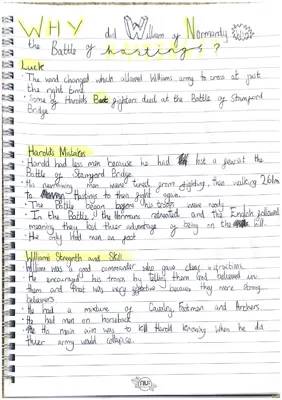 WHY did William of Normandy win
the Battle of hastings?
Luck
• The wind changed which allowed Williams army to cross at just
the right time
• Some of Harolds Best fighters died at the Battle of Stamford
Bridge
Harold's Mistakes
• Harold had less men because he had lost a few at the
Battle of Stamford Bridge.
• His remaining men were tired from fighting, then walking 261m
to Hastings to then fight again.
• The Battle began before his troops were ready
• In the Battle, the Normans retreated and the English followed
meaning they lost their advantage of being on the hill.
• He only had men on foot
Williams Strength and Skill
William was a good commander who gave clear instructions
• He encouraged his troops by telling them God believed in
them and that was very effective because they were strong
believers
• He had a mixture of Cavalry, Footmen and Archers.
• He had men on horseback
• His main aim was to kill Harold knowing when he died
their army would collapse.